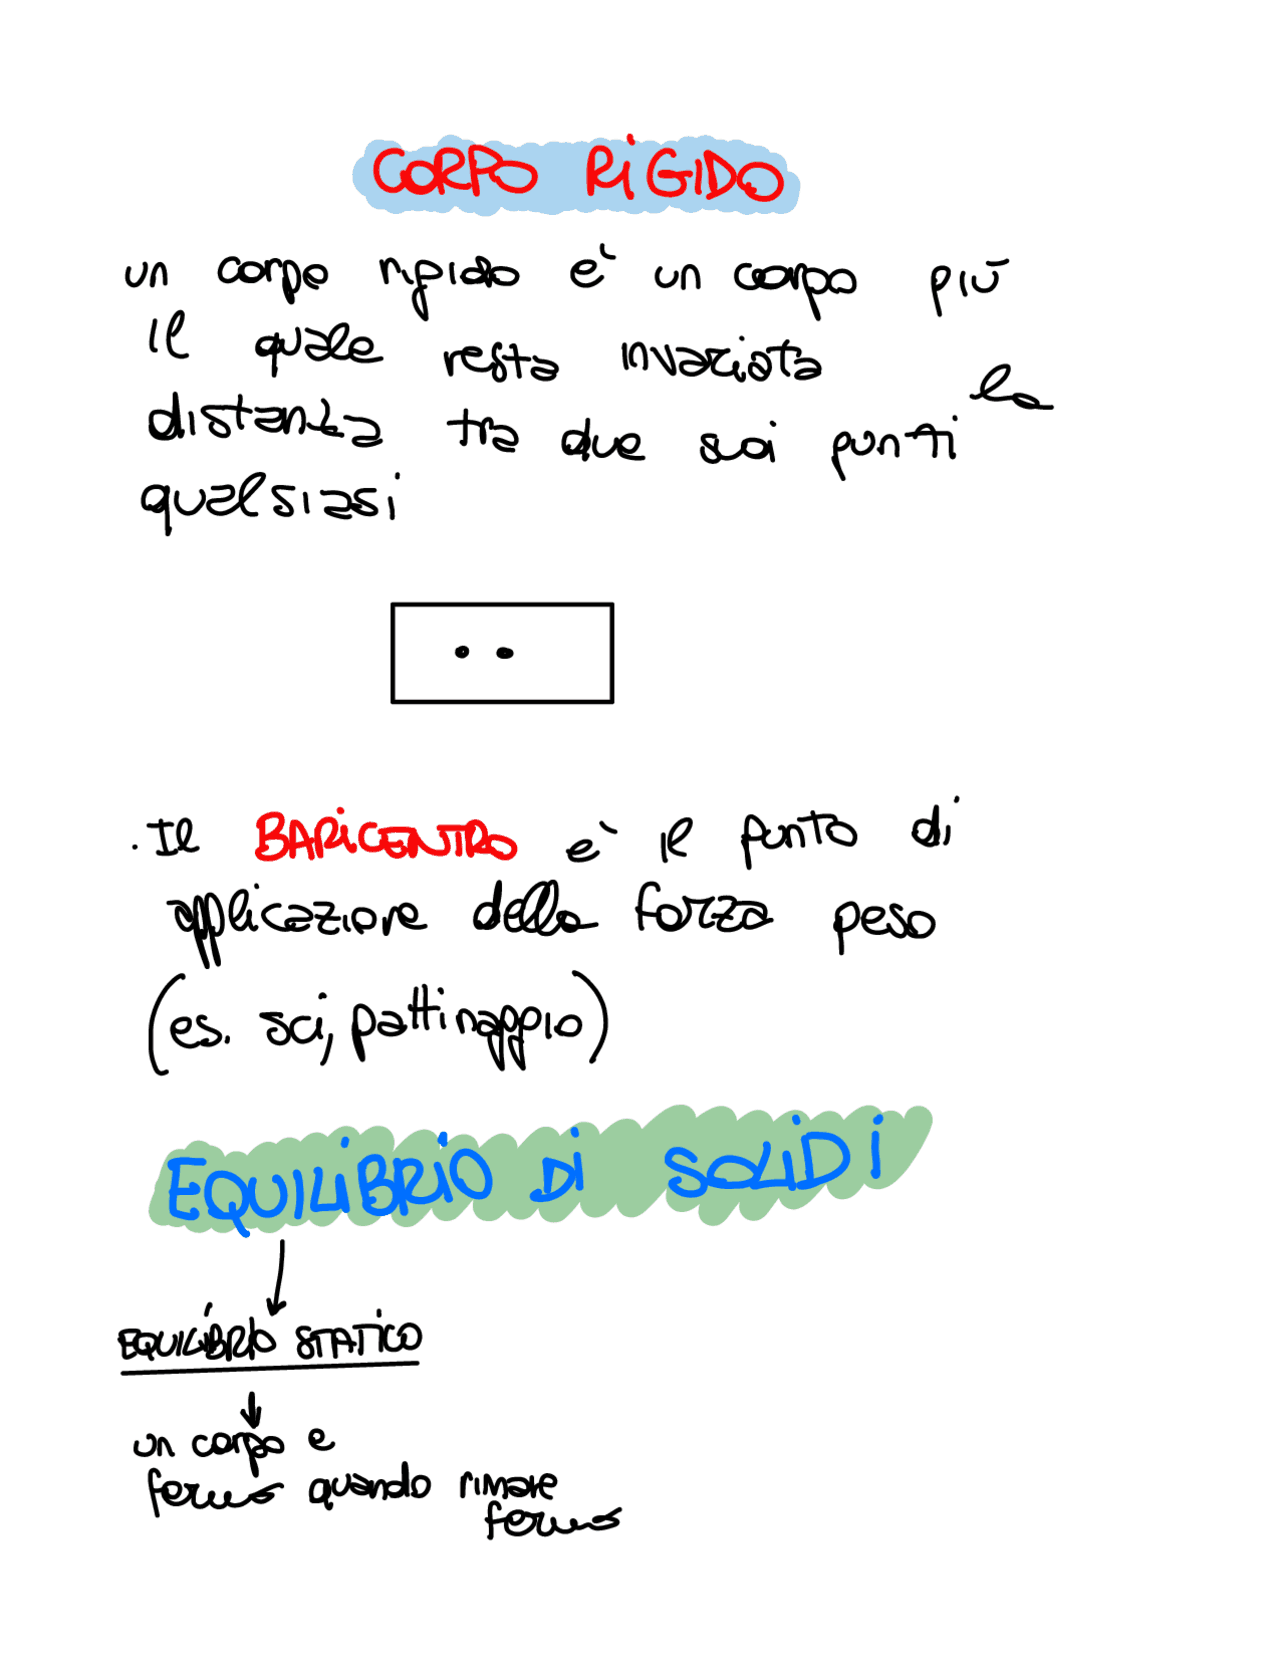 CORPO RIGIDO
un corpo rigido e' un corpo più
il quale resta invariata la
distanza tra due suoi punti
qualsiasi
. Il BARICENTRO e' il punto di
applicazione della forza peso
(es. sci, pattinaggio)
EQUILIBRIO DI SOLIDI
EQUILIBRIO STATICO
un corpo e
fermo quando rimane
fermo